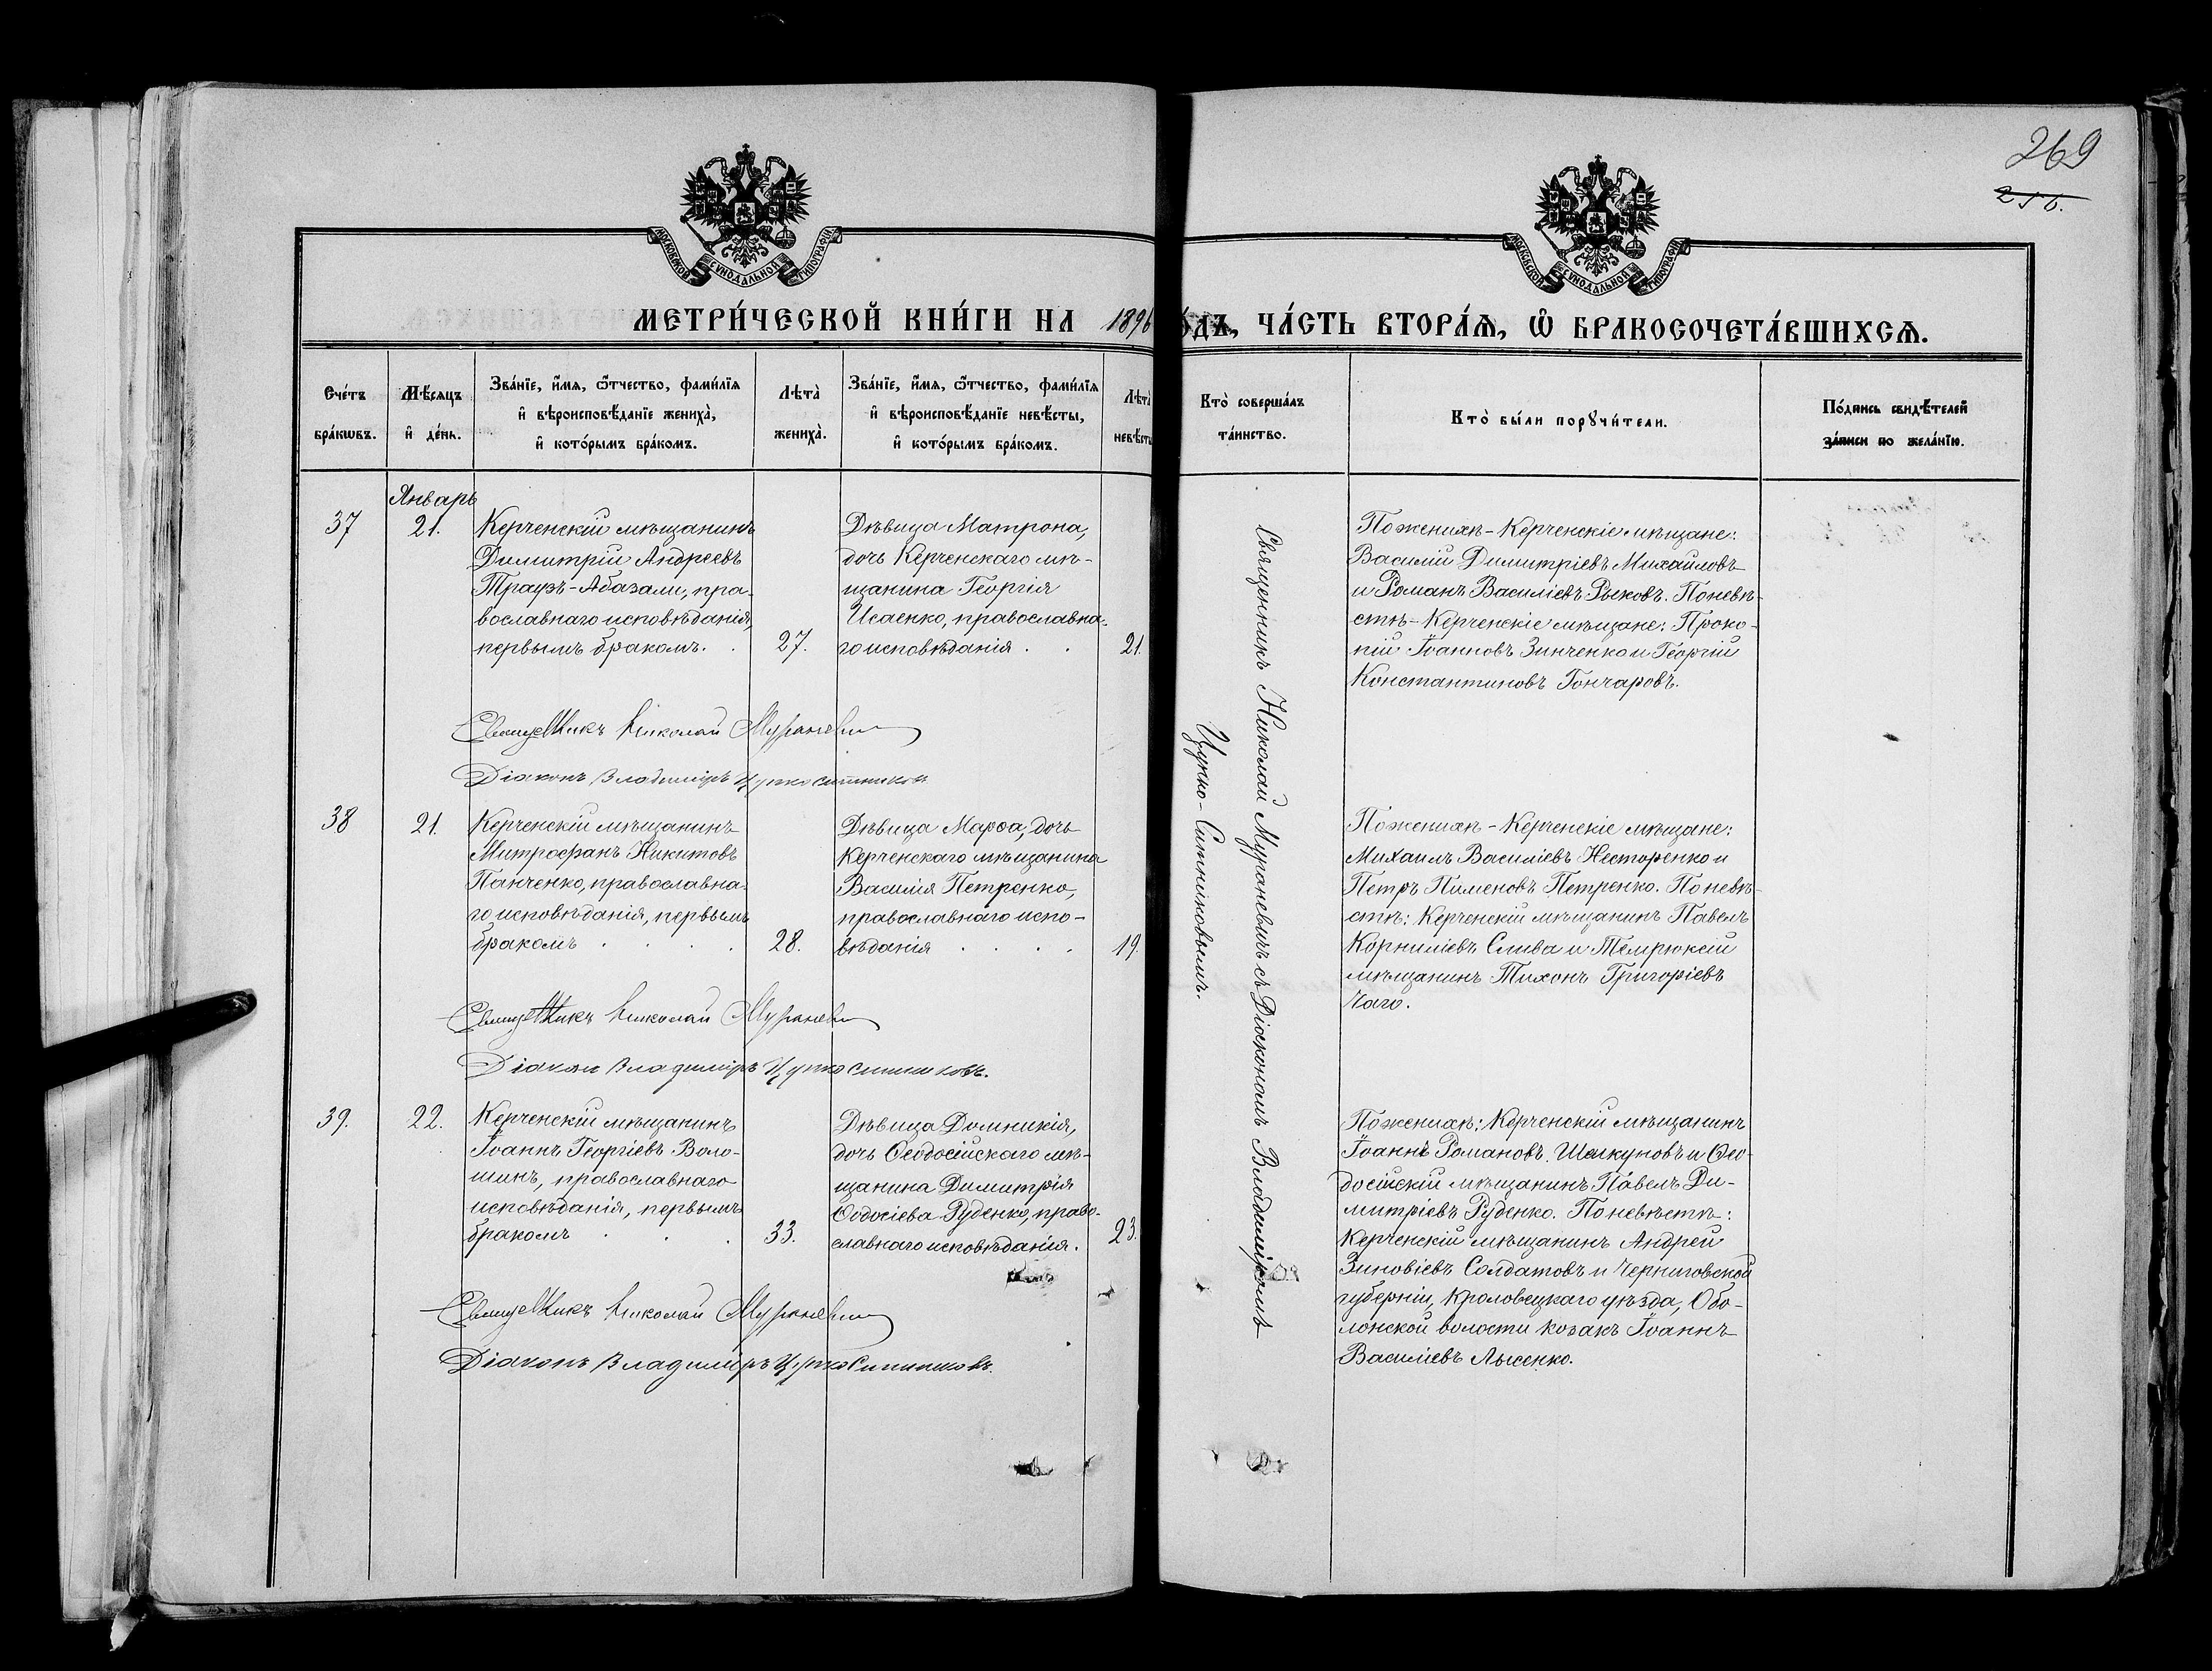 269
256.
МОСКОВСКОЙ СѴНОДАЛЬНОЙ ТИПОГРАФІИ
МОСКОВСКОЙ СѴНОДАЛЬНОЙ ТИПОГРАФІИ
МЕТРИ́ЧЕСКОЙ КНИ́ГИ НА 1896
О́ДЪ, ЧА́СТЬ ВТОРА́Ѧ, Ѡ҆ БРАКОСОЧЕТА́ВШИХСѦ.
Сче́тъ
бра́кѡвъ.
Мѣ́сѧцъ
и҆ де́нь.
Зва́нїе, и҆́мѧ, ѻ҆́тчество, фами́лїѧ
и҆ вѣроисповѣ́данїе жениха̀,
и҆ кото́рымъ бра́комъ.
Лѣта̀
жениха̀.
Зва́нїе, и҆́мѧ, ѻ҆́тчество, фами́лїѧ
и҆ вѣроисповѣ́данїе невѣ́сты,
и҆ кото́рымъ бра́комъ.
Лѣта̀
невѣ́сты
Кто̀ соверша́лъ
та́инство.
Кто̀ бы́ли порꙋчи́тели.
По́дпись свидѣ́телей
за́писи по жела́нїю.
Январь
37
21.
Керченскій мѣщанинъ
Димитрій Андреевъ
Трауэ-Абазали, пра-
вославнаго исповѣданія,
первымъ бракомъ.
27.
Дѣвица Матрона,
дочь Керченскаго мѣ-
щанина Георгія
Исаенко, православна-
го исповѣданія
21.
По женихѣ - Керченскіе мѣщане:
Василій Димитріевъ Михайловъ
и Романъ Василіевъ Рыковъ. По невѣ-
стѣ - Керченскіе мѣщане: Проко-
пій Іоанновъ Зинченко и Георгій
Константиновъ Гончаровъ.
Священникъ Николай Мураневичъ
Діаконъ Владиміръ Цурко Ситниковъ
38
21.
Керченскій мѣщанинъ
Митрофанъ Никитовъ
Панченко, православна-
го исповѣданія, первымъ
бракомъ
28.
Дѣвица Марѳа, дочь
Керченскаго мѣщанина
Василія Петренко,
православнаго испо-
вѣданія
19.
По женихѣ - Керченскіе мѣщане:
Михаилъ Василіевъ Несторенко и
Петръ Пименовъ Петренко. По невѣ-
стѣ: Керченскій мѣщанинъ Павелъ
Корниліевъ Слива и Темрюкскій
мѣщанинъ Тихонъ Григоріевъ
Чаго.
Священникъ Николай Мураневичъ
Діаконъ Владиміръ Цурко Ситниковъ.
39.
22.
Керченскій мѣщанинъ
Іоаннъ Георгіевъ Воло-
шинъ, православнаго
исповѣданія, первымъ
бракомъ
33.
Дѣвица Домникія,
дочь Ѳеодосійскаго мѣ-
щанина Димитрія
Ѳодосіева Руденко, право-
славнаго исповѣданія.
23.
По женихѣ: Керченскій мѣщанинъ
Іоаннъ Романовъ Шелкуновъ и Ѳео-
досійскій мѣщанинъ Павелъ Ди-
митріевъ Руденко. По невѣстѣ:
Керченскій мѣщанинъ Андрей
Зиновіевъ Солдатовъ и Черниговской
губерніи, Кроловецкаго уѣзда, Обо-
лонской волости козакъ Іоаннъ
Василіевъ Лысенко.
Священникъ Николай Мураневичъ
Діаконъ Владиміръ Цурко Ситниковъ.
Священникъ Николай Мураневичъ съ Діакономъ Владиміромъ
Цурко-Ситниковымъ.